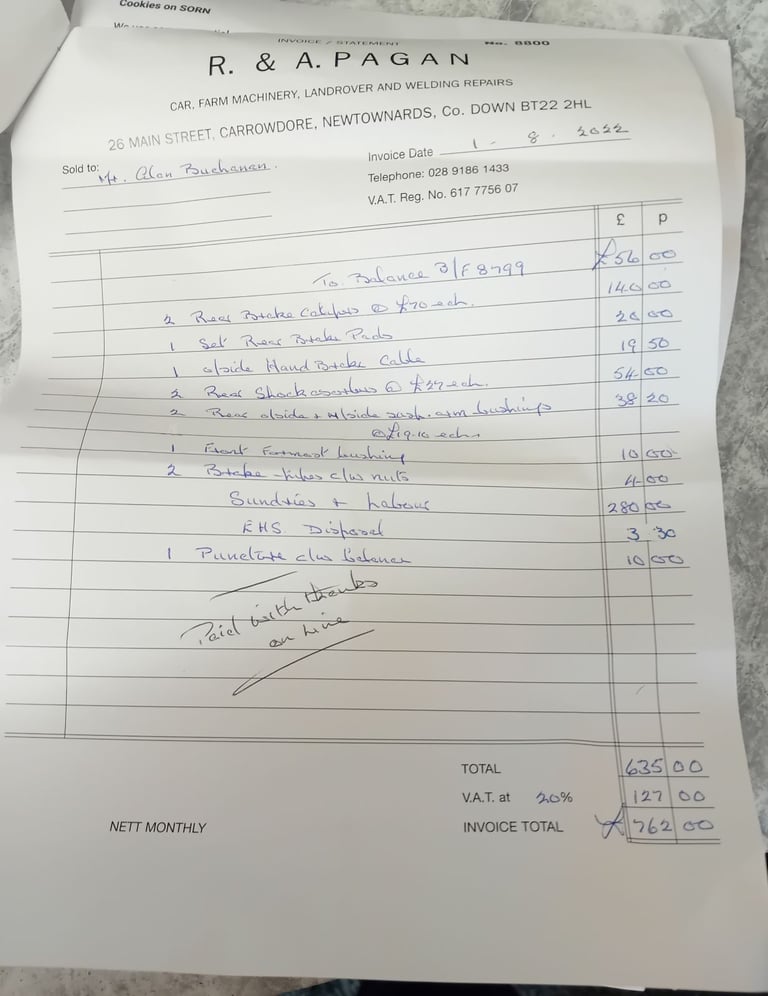 Cookies on SORN
INVOICE / STATEMENT No. 8800
R. & A. PAGAN
CAR, FARM MACHINERY, LANDROVER AND WELDING REPAIRS
26 MAIN STREET, CARROWDORE, NEWTOWNARDS, Co. DOWN BT22 2HL
Sold to: Mr. Alan Buchanan.
Invoice Date 1 - 8 . 2022
Telephone: 028 9186 1433
V.A.T. Reg. No. 617 7756 07
£ p
To Balance B/F 8799 £56 00
2 Rear Brake Calipers @ £70 each. 140 00
1 Set Rear Brake Pads 20 00
1 o/side Hand Brake Cable 19 50
2 Rear Shockabsorbers @ £27 each. 54 00
2 Rear o/side + n/side arm bushings 38 20
@ £19.10 each
1 Front bushing 10 00
2 Brake pipes c/w nuts 4 00
Sundries + Labour 280 00
EHS Disposal 3 30
1 Puncture c/w balance 10 00
Paid with thanks
on line
TOTAL 635 00
V.A.T. at 20% 127 00
NETT MONTHLY INVOICE TOTAL £ 762 00